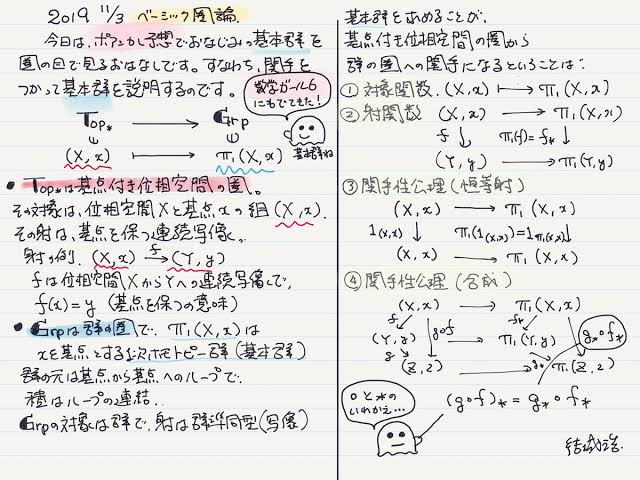 2019 11/3 ベーシック圏論
今日は、ポアンカレ予想でおなじみの基本群を
圏の目で見るおはなしです。すなわち、関手を
つかって基本群を説明するのです。
数学ガール6
にもでてきた!
Top* → Grp
(X,x) ↦ π1(X,x)
基本群ね
• Top*は基点付き位相空間の圏。
その対象は、位相空間Xと基点xの組(X,x).
その射は、基点を保つ連続写像。
射の例. (X,x) f→ (Y,y)
fは位相空間XからYへの連続写像で、
f(x)=y (基点を保つの意味)
• Grpは群の圏で、π1(X,x)は
xを基点とする1次ホモトピー群(基本群)
群の元は基点から基点へのループで、
積はループの連結.
Grpの対象は群で、射は群準同型(写像)
基本群を求めることが、
基点付き位相空間の圏から
群の圏への関手になるということは:
① 対象関数. (X,x) ↦ π1(X,x)
② 射関数 (X,x) → π1(X,x)
f↓ π1(f)=f*↓
(Y,y) → π1(Y,y)
③ 関手性公理(恒等射)
(X,x) → π1(X,x)
1(X,x)↓ π1(1(X,x))=1π1(X,x)↓
(X,x) → π1(X,x)
④ 関手性公理(合成)
(X,x) → π1(X,x)
f g∘f f* g*∘f*
(Y,y) → π1(Y,y)
g g*
(Z,z) → π1(Z,z)
∘と*の
いれかえ…
(g∘f)* = g*∘f*
結城浩